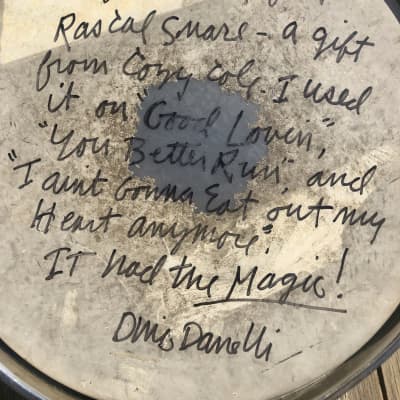 Rascal Snare - a gift
from Cozy Cole. I used
it on "Good Lovin",
"You Better Run", and
"I aint Gonna Eat out my
Heart anymore".
IT had the Magic!
Dino Danelli